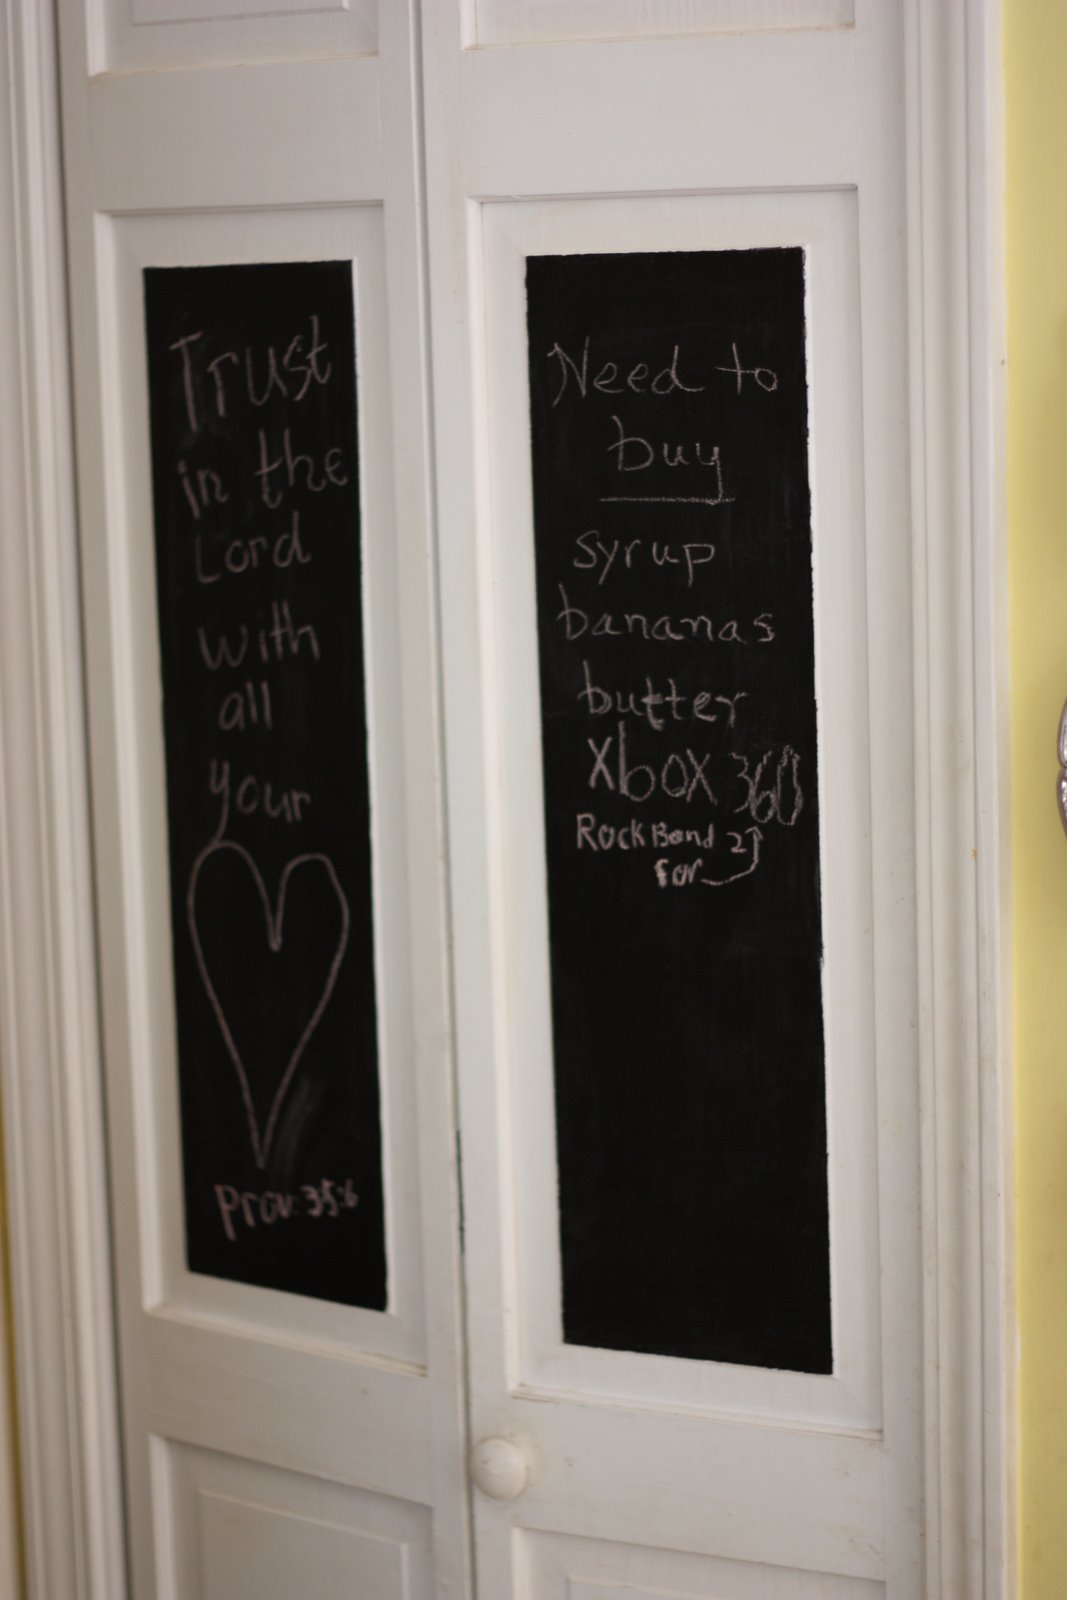 Trust
in the
Lord
with
all
your
Prov. 35:6
Need to
buy
syrup
bananas
butter
Xbox 360
Rock Band 2
for